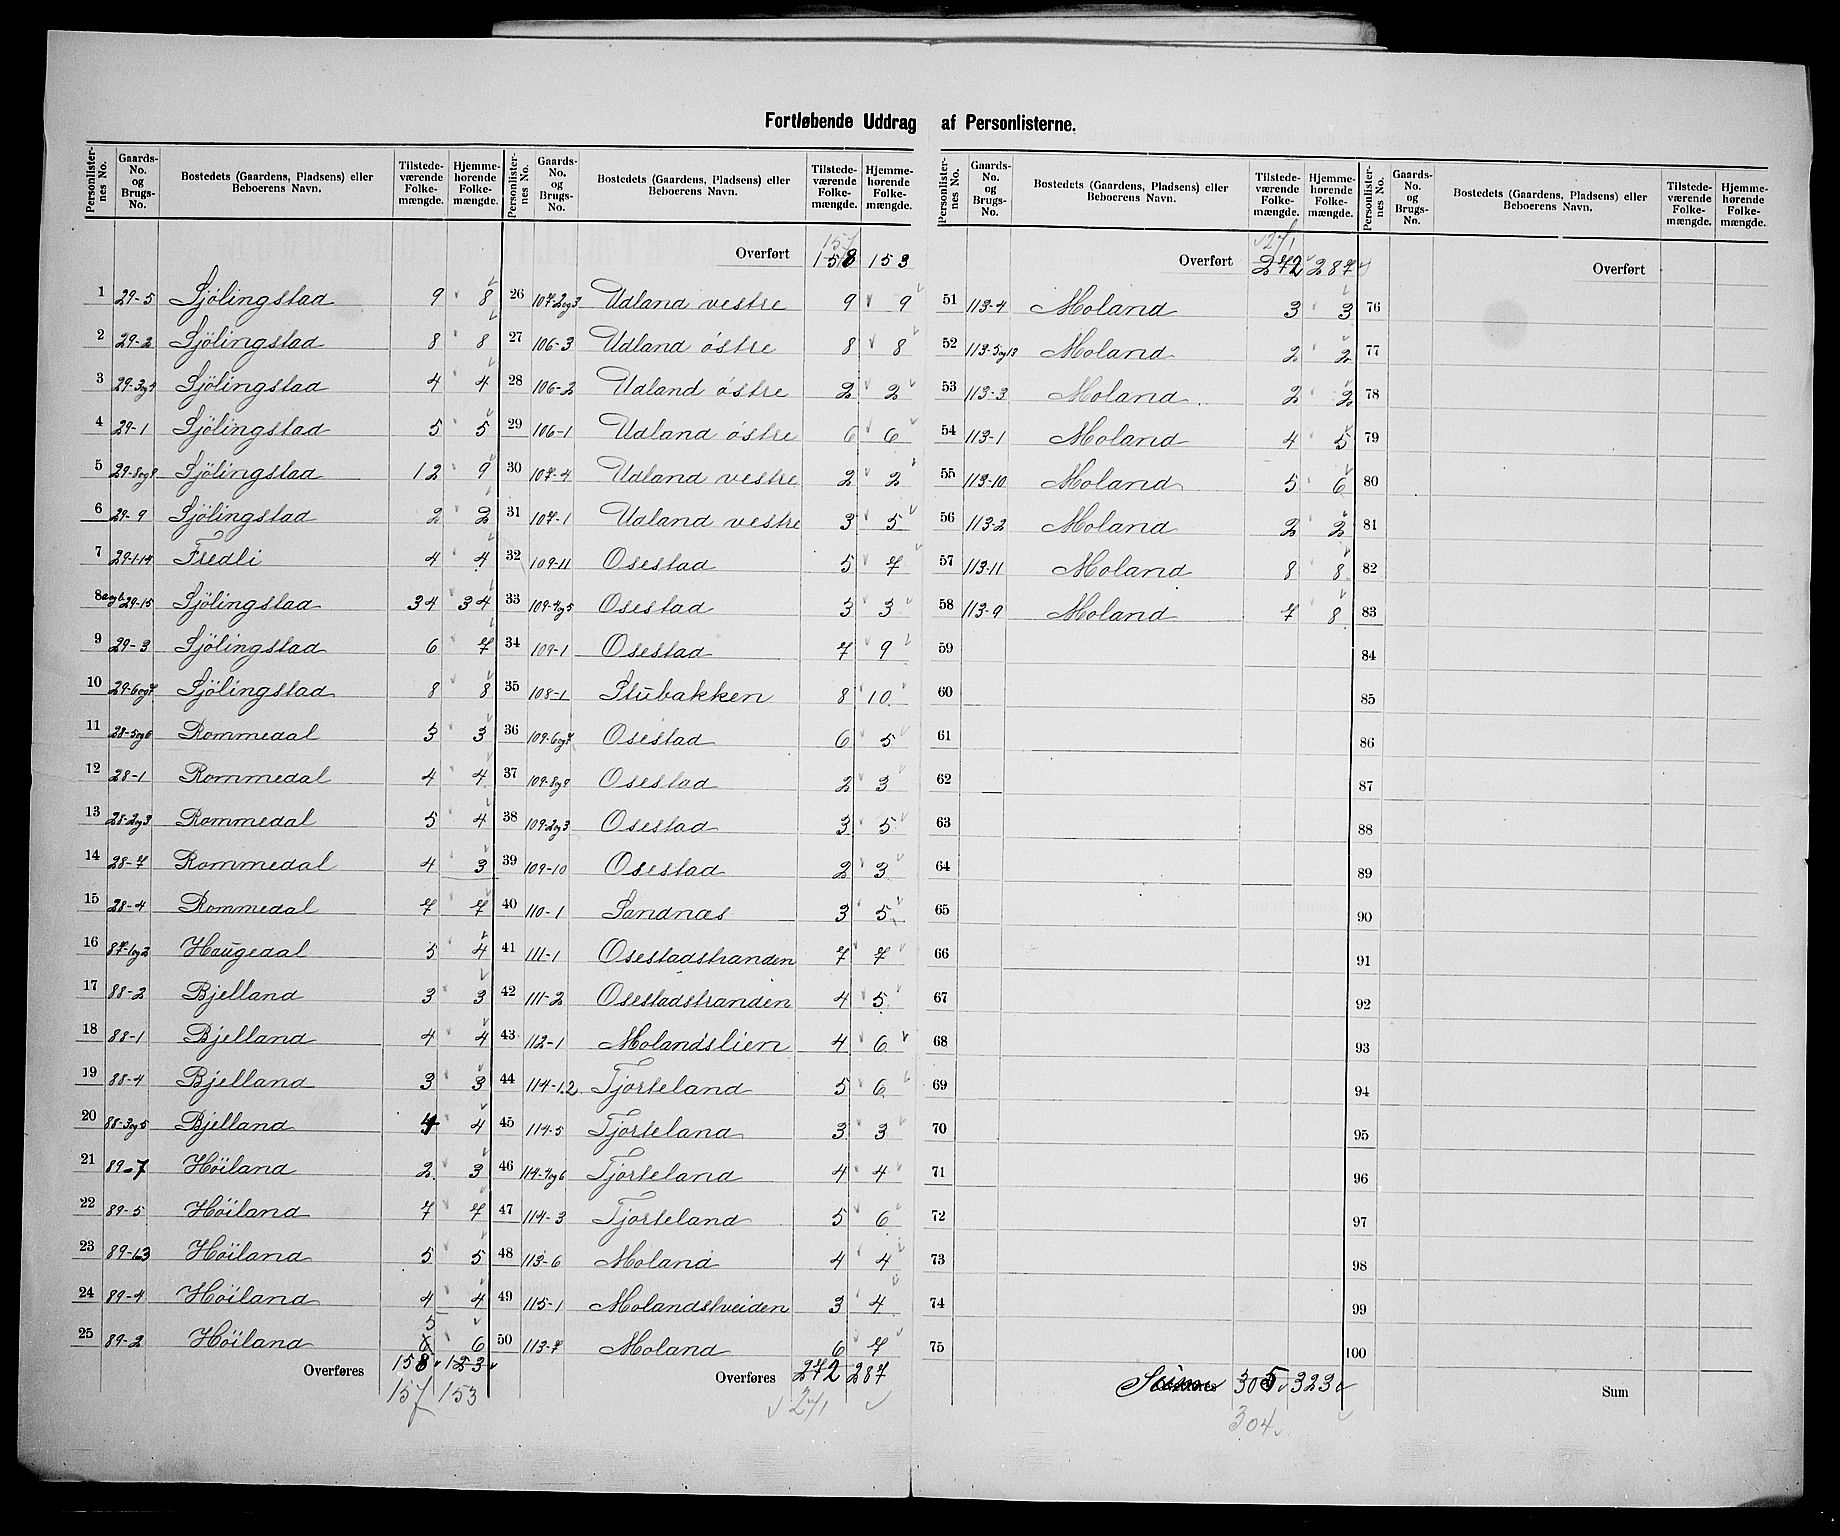 Fortløbende Uddrag af Personlisterne.
Personlister-nes No. Gaards-No. og Brugs-No. Bostedets (Gaardens, Pladsens) eller Beboerens Navn. Tilstede-værende Folke-mængde. Hjemme-hørende Folke-mængde.
1 29-5 Sjölingstad 9 8
2 29-2 Sjölingstad 8 8
3 29-3og4 Sjölingstad 4 4
4 29-1 Sjölingstad 5 5
5 29-8og9 Sjölingstad 12 9
6 29-9 Sjölingstad 2 2
7 29-1-14 Fredli 4 4
8a og b 29-15 Sjölingstad 34 34
9 29-3 Sjölingstad 6 7
10 29-6og7 Sjölingstad 8 8
11 28-5og6 Rommedal 3 3
12 28-1 Rommedal 4 4
13 28-2og3 Rommedal 5 4
14 28-7 Rommedal 4 3
15 28-4 Rommedal 7 7
16 87-1og2 Haugedal 5 4
17 88-2 Bjelland 3 3
18 88-1 Bjelland 4 4
19 88-4 Bjelland 3 3
20 88-3og5 Bjelland 4 4
21 89-7 Höiland 2 3
22 89-5 Höiland 7 7
23 89-13 Höiland 5 5
24 89-4 Höiland 4 4
5
25 89-2 Höiland 6 6
Overføres 158 123
157 153
Personlister-nes No. Gaards-No. og Brugs-No. Bostedets (Gaardens, Pladsens) eller Beboerens Navn. Tilstede-værende Folke-mængde. Hjemme-hørende Folke-mængde.
157
Overført 158 153
26 107-2og3 Udland vestre 9 9
27 106-3 Udland östre 8 8
28 106-2 Udland östre 2 2
29 106-1 Udland östre 6 6
30 107-4 Udland vestre 2 2
31 107-1 Udland vestre 3 5
32 109-11 Osestad 5 7
33 109-4og5 Osestad 3 3
34 109-1 Osestad 7 9
35 108-1 Stubakken 8 10
36 109-6og7 Osestad 6 5
37 109-8og9 Osestad 2 3
38 109-2og3 Osestad 3 5
39 109-10 Osestad 2 3
40 110-1 Sandnæs 3 5
41 111-1 Osestadstranden 7 7
42 111-2 Osestadstranden 4 5
43 112-1 Molandslien 4 6
44 114-1.2 Tjorteland 5 6
45 114-5 Tjorteland 3 3
46 114-4og6 Tjorteland 4 4
47 114-3 Tjorteland 5 6
48 113-6 Moland 4 4
49 115-1 Molandstveiden 3 4
50 113-7 Moland 6 7
Overføres 272 287
271
Personlister-nes No. Gaards-No. og Brugs-No. Bostedets (Gaardens, Pladsens) eller Beboerens Navn. Tilstede-værende Folke-mængde. Hjemme-hørende Folke-mængde.
271
Overført 272 287
51 113-4 Moland 3 3
52 113-5og13 Moland 2 2
53 113-3 Moland 2 2
54 113-1 Moland 4 5
55 113-10 Moland 5 6
56 113-2 Moland 2 2
57 113-11 Moland 8 8
58 113-9 Moland 7 8
59
60
61
62
63
64
65
66
67
68
69
70
71
72
73
74
75
Sum 305 323
304
Personlister-nes No. Gaards-No. og Brugs-No. Bostedets (Gaardens, Pladsens) eller Beboerens Navn. Tilstede-værende Folke-mængde. Hjemme-hørende Folke-mængde.
Overført
76
77
78
79
80
81
82
83
84
85
86
87
88
89
90
91
92
93
94
95
96
97
98
99
100
Sum